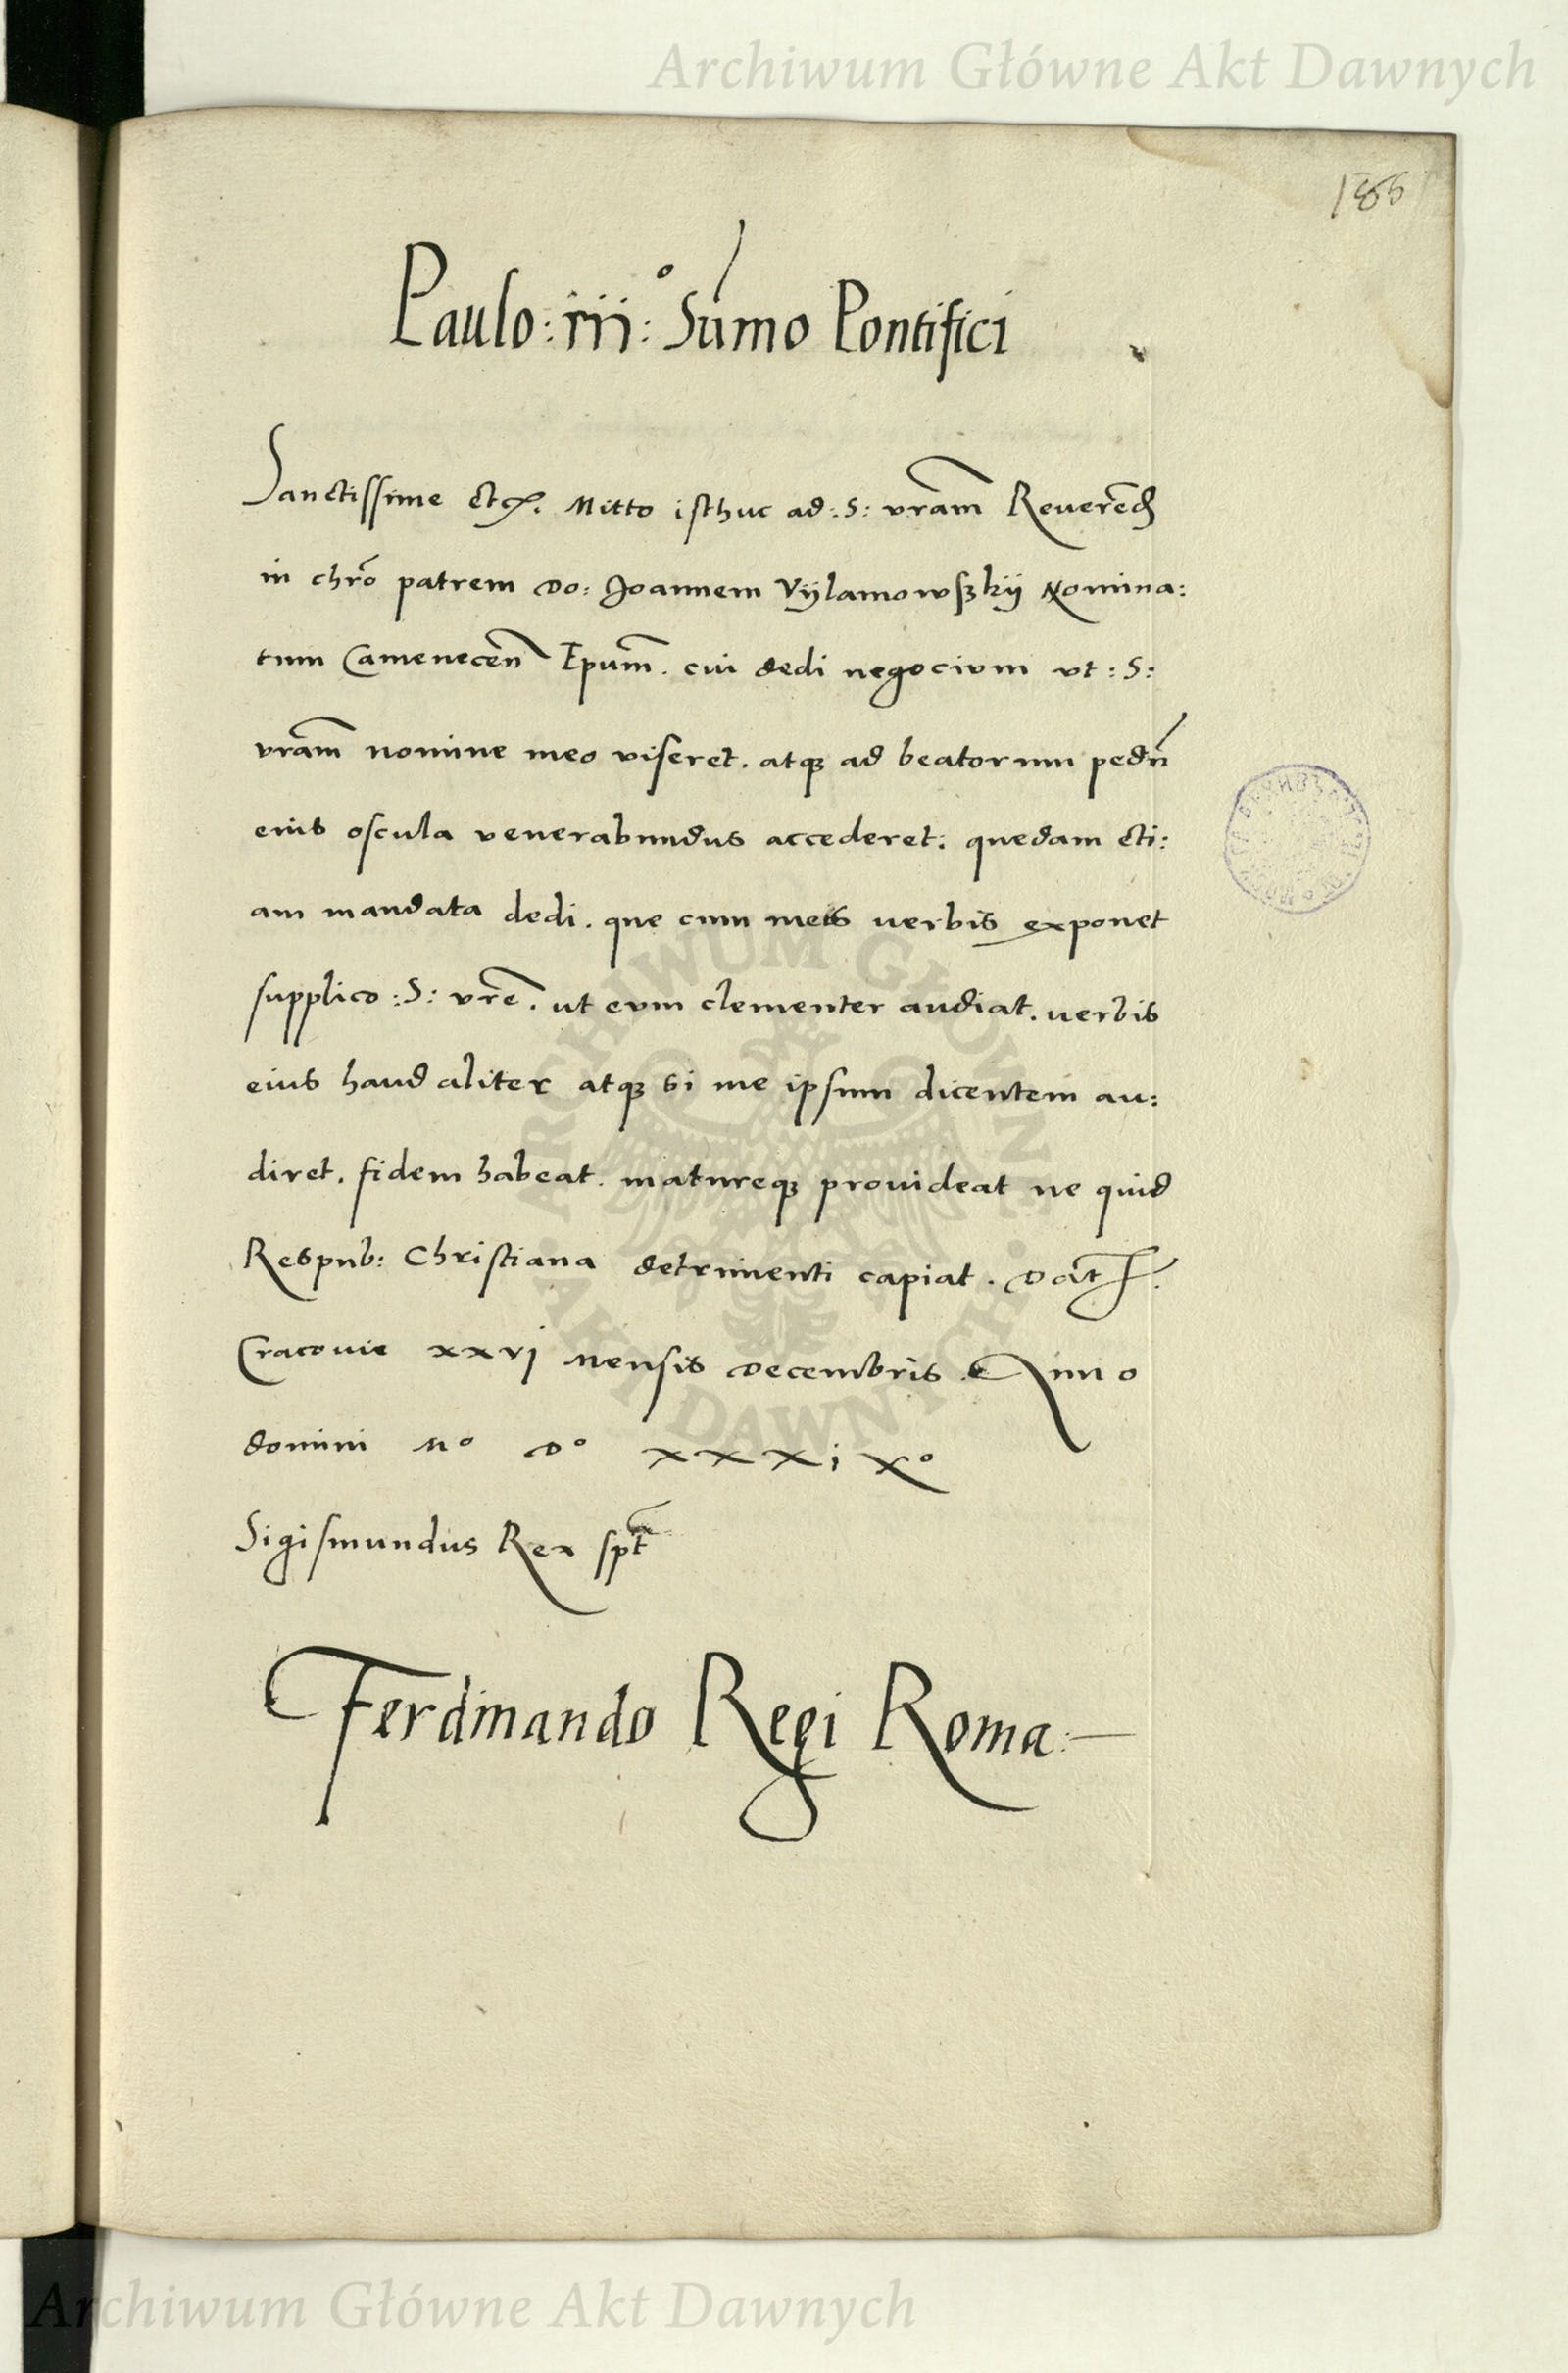 Archiwum Główne Akt Dawnych
Paulo: iii:° Sum̄o Pontifici
Sanctissime etc. Mitto isthuc ad: S: vram̄ Reueren̄d
in chrō patrem Do: Joannem Vÿlamowßkÿ Nomina:
tum Camenecen̄ Epum̄. cui dedi negocium vt: S:
vram̄ nomine meo viseret. atqꝫ ad beatorum pedn̄
eius oscula venerabundus accederet: quedam eti:
am mandata dedi. que cum meis verbis exponet
supplico: S: vrē. ut eum clementer audiat. uerbis
eius haud aliter atqꝫ si me ipsum dicentem au:
diret. fidem habeat. matureqꝫ prouideat ne quid
Respub: Christiana detrimenti capiat. Dat̄
Cracouie xxvj Mensis Decembris. Anno
domini M° D° xxxix°
Sigismundus Rex spt̄
Ferdinando Regi Roma:—
ARCHIWUM GŁÓWNE
AKT DAWNYCH
Archiwum Główne Akt Dawnych